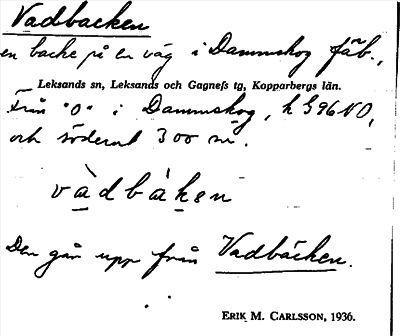 Vadbacken
en backe på en väg i Dammskog fäb.,
Leksands sn, Leksands och Gagnefs tg, Kopparbergs län.
Från "O" i Dammskog, k 396 NO,
och söderut 300 m.
vàdbàken
Den går upp från Vadbäcken.
ERIK M. CARLSSON, 1936.